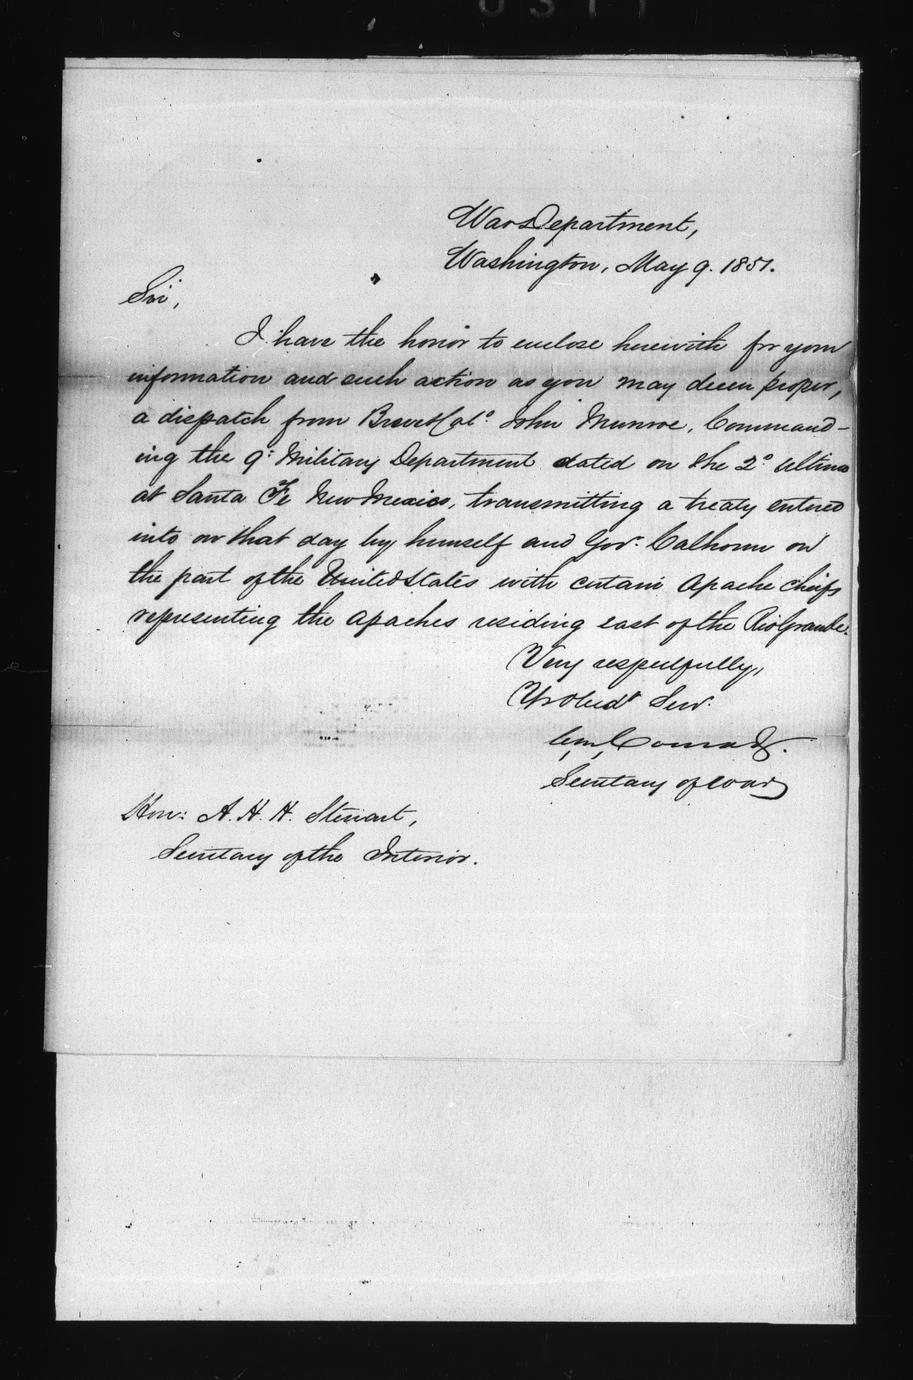 War Department,
Washington, May 9. 1851.
Sir,
I have the honor to enclose herewith for your
information and such action as you may deem proper,
a dispatch from Brevet Col. John Munroe, Command-
ing the 9th Military Department dated on the 2d ultimo
at Santa Fe New Mexico, transmitting a treaty entered
into on that day by himself and Gov. Calhoun on
the part of the United States with certain Apache Chiefs
representing the Apaches residing east of the Rio Grande.
Very respectfully,
Yr Obedt Serv.
C. M. Conrad
Secretary of War
Hon: A. H. H. Stewart,
Secretary of the Interior.